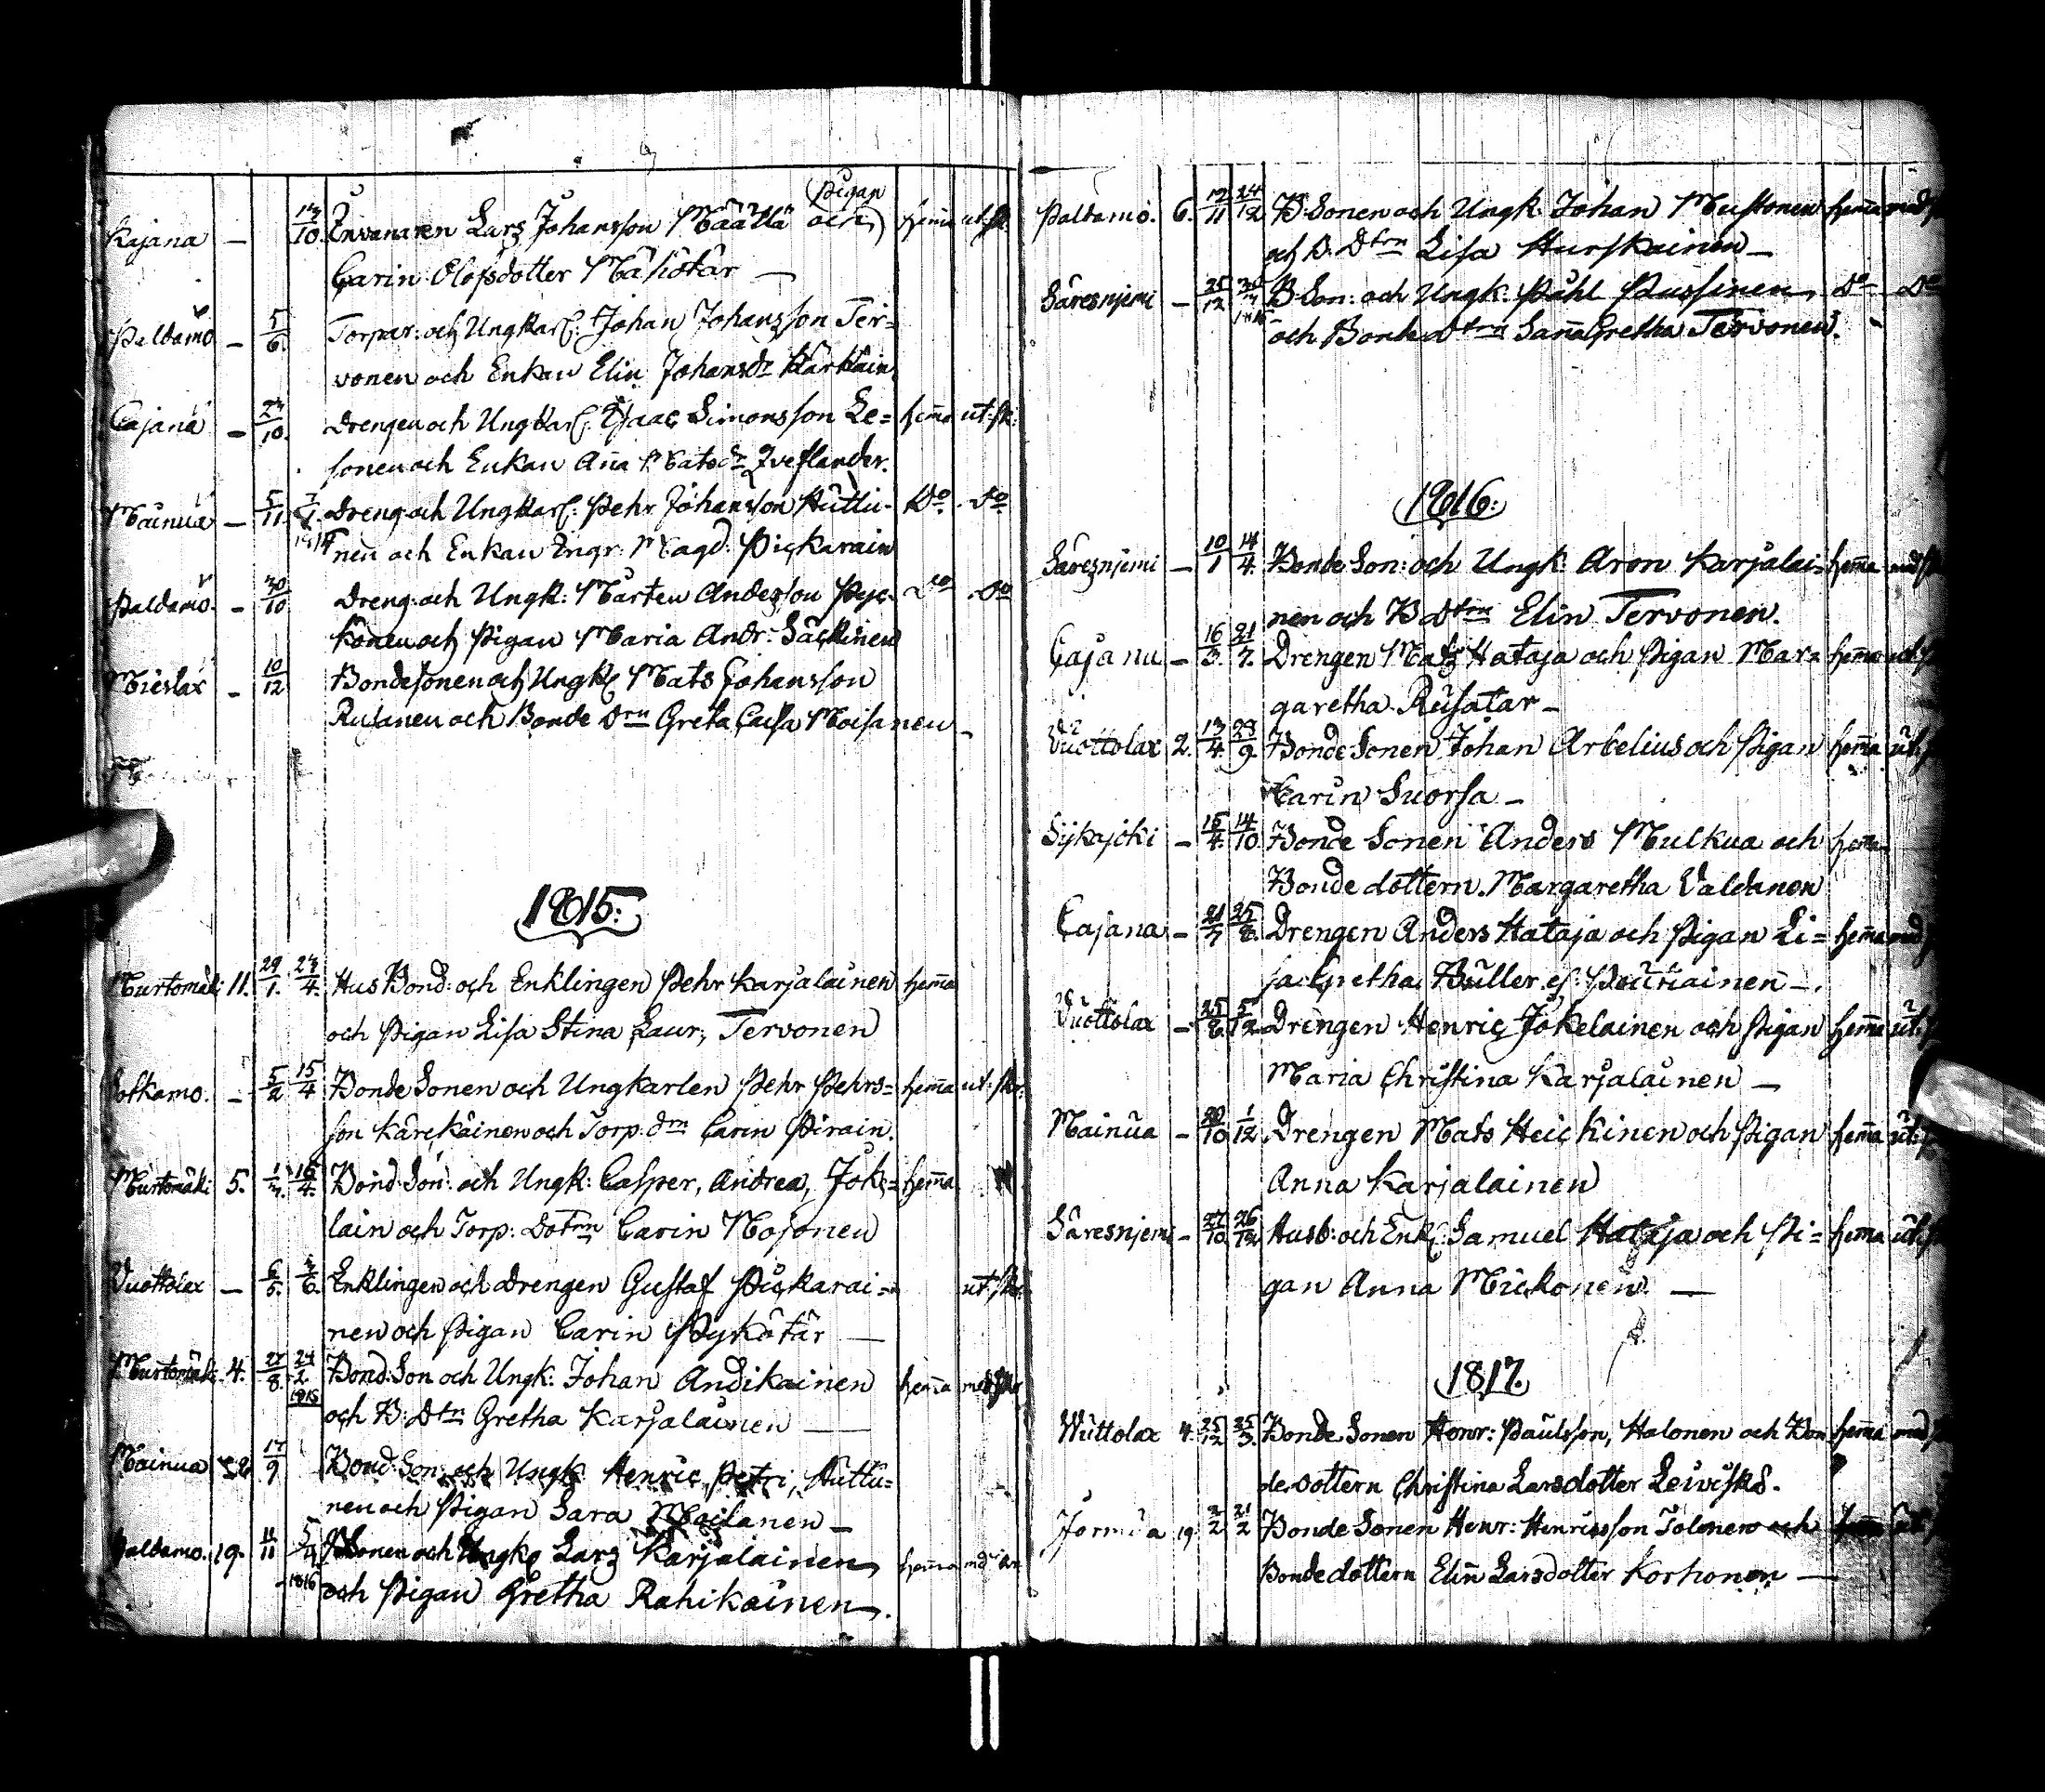 Pigan
Kajana — 13/10. Invanaren Lars Johansson Määttä och hema ut. sk.
Carin Olofsdotter Mähötär —
Paldamo — 5/6. Torpar: och Ungkarl: Johan Johansson Ter=
vonen och Enkan Elin Johansdr Kärkäin
Cajana — 27/10. Drengen och Ungkarl. Isaac Simonsson Le= hema ut. sk.
sonen och Enkan Ana Matsdr Zveflander.
Mainua — 5/11. Dreng och Ungkarl: Pehr Johansson Huttu- Do. Do
1814 nen och Enkan Ingr: Magd: Pickarain
Paldamo. — 30/10 Dreng: och Ungk: Mårten Andersson Pyc- Do Do
könen och Pigan Maria Andr: Säckinen
Mieslax — 10/12 Bondesonen och Ungk Mats Johansson
Rusanen och Bonde Drn Greta Caisa Moisanen —
1815:
Murtomäki 11. 29/1. 23/4. Hus Bond: och Enklingen Pehr Karjalainen hema
och Pigan Lisa Stina Laur; Tervonen
Sotkamo. — 5/2 15/4 Bonde Sonen och Ungkarlen Pehr Pehrs= hema ut. skr.
son Kärckäinen och Torp. drn Carin Pirain.
Murtomäki 5. 1/3. 16/4. Bond: Son: och Ungk: Casper, Andrea, Jok= hema
lain och Torp: Dotrn Carin Mojonen
Vuottolax — 6/5. 4/6. Enklingen och Drengen Gustaf Pickarai= ut skr.
nen och Pigan Carin Pykötär —
Murtomäki 4. 27/8. 24/2 Bond: Son och Ungk: Johan Andikainen hema med skr
1816 och B: Dtr Gretha Karjalainen —
Mainua 17/9 Bond: Son: och Ungk: Henric Petri, Huttu=
nen och Pigan Sara Moilanen —
Paldamo. 19. 11/11 Bsonen och Ungk Lars Karjalainen hema
1816 och Pigan Gretha Rahikainen.
Paldamo. 6. 12/11 24/12 B. Sonen och Ungk. Johan Mustonen hema med
och B. Dtrn Lisa Hurskainen —
Säresnjemi — 25/12 B. Son: och Ungk: Påhl Pussinen Do Do
1816 och Bonde Dtrn Sana Gretha Tervonen.
1816:
Säresnjemi — 10/1 14/4. Bonde Son: och Ungk. Aron Karjalai= hema
nen och B Dtrn Elin Tervonen.
Cajana — 16/3. 21/7. Drengen Mats Hataja och Pigan Mar= hema
garetha Rusatar —
Vuottolax 2. 13/4. 29/9. Bonde Sonen Johan Arbelius och Pigan hema ut.
Carin Suorsa —
Sijkajoki — 15/4. 14/10. Bonde Sonen Anders Mulkua och hema
Bonde dottern. Margaretha Valdanen
Cajana — 21/7 25/8. Drengen Anders Hataja och Pigan Li= hema med
sa Gretha Buller
Vuottolax — 25/8. 5/12. Drengen Henric Jokelainen och Pigan hema ut.
Maria Christina Karjalainen —
Mainua — 20/10 1/12 Drengen Mats Heickinen och Pigan hema ut.
Anna Karjalainen
Säresnjemi — 27/10. 26/12 Husb: och Enkl: Samuel Hataja och Pi= hema ut.
gan Anna Mickonen. —
1817.
Wuttolax 4. 25/12 25/3. Bonde Sonen Henr: Paulsson, Halonen och Bon hema med
dedottern Christina Larsdotter Leiviskä.
Jormua 19. 2/2 21/2 Bonde Sonen Henr: Henricsson Tolonen och
Bondedottern Elin Larsdotter Korhonen —